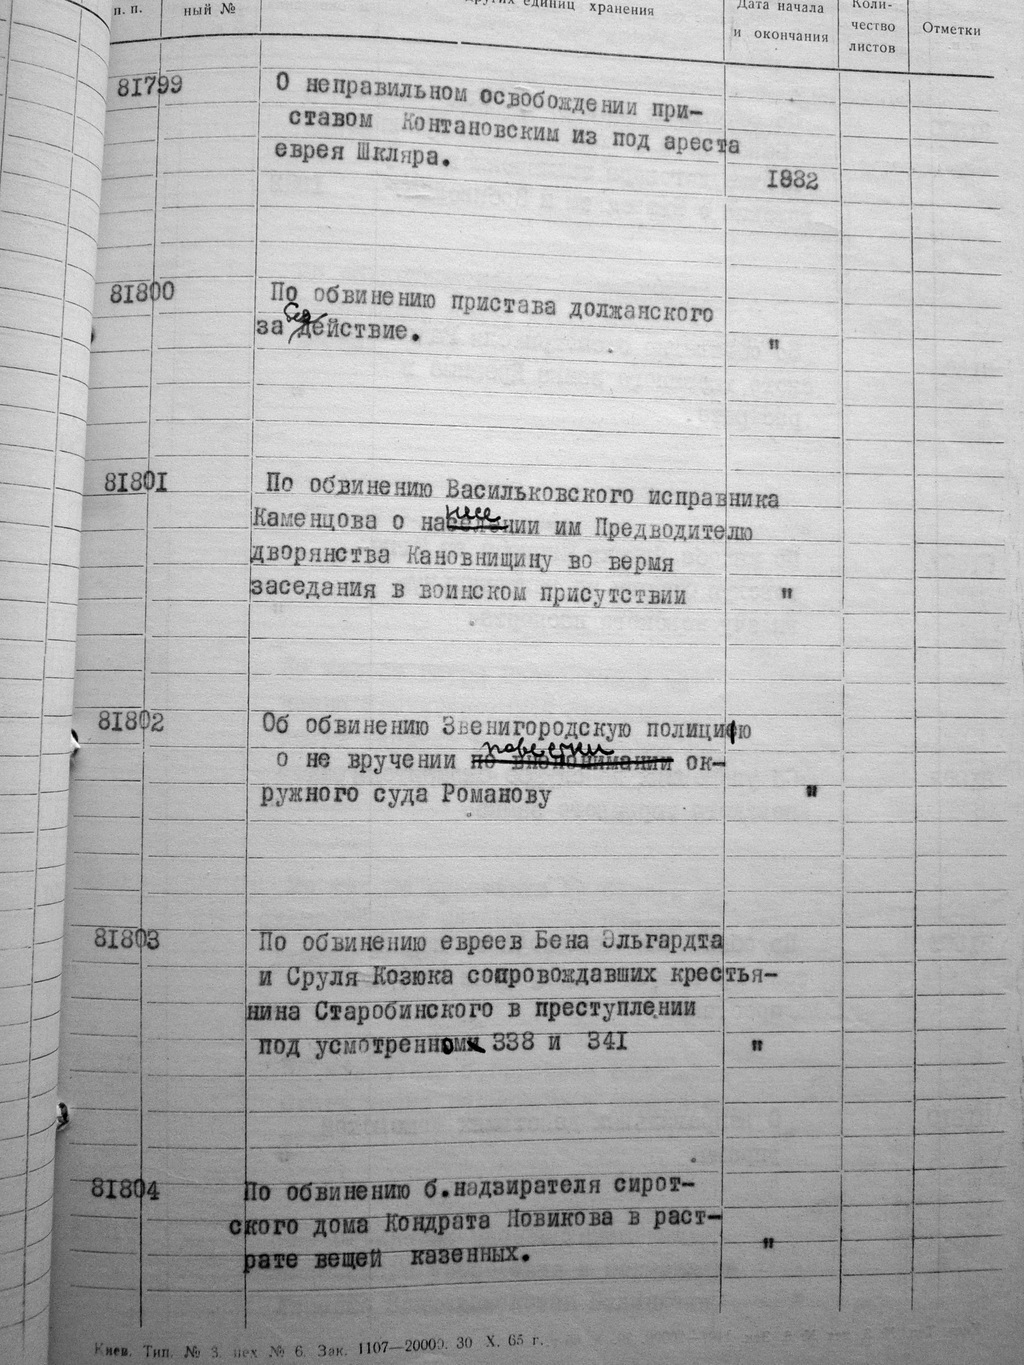 п. п.
ный №
других единиц хранения
Дата начала
и окончания
Коли-
чество
листов
Отметки
81799
О неправильном освобождении при-
ставом Контановским из под ареста
еврея Шкляра.
1882
81800
По обвинению пристава должанского
без
за действие.
"
81801
По обвинению Васильковского исправника
несе
Каменцова о населении им Предводителю
дворянства Кановнищину во вермя
заседания в воинском присутствии "
81802
Об обвинению Звенигородскую полицию
повестки
о не вручении ок-
ружного суда Романову "
81803
По обвинению евреев Бена Эльгардта
и Сруля Козюка сопровождавших крестья-
нина Старобинского в преступлении
под усмотренном 338 и 341 "
81804
По обвинению б.надзирателя сирот-
ского дома Кондрата Новикова в раст-
рате вещей казенных. "
Киев. Тип. № 3. цех № 6. Зак. 1107—20000. 30 X. 65 г.